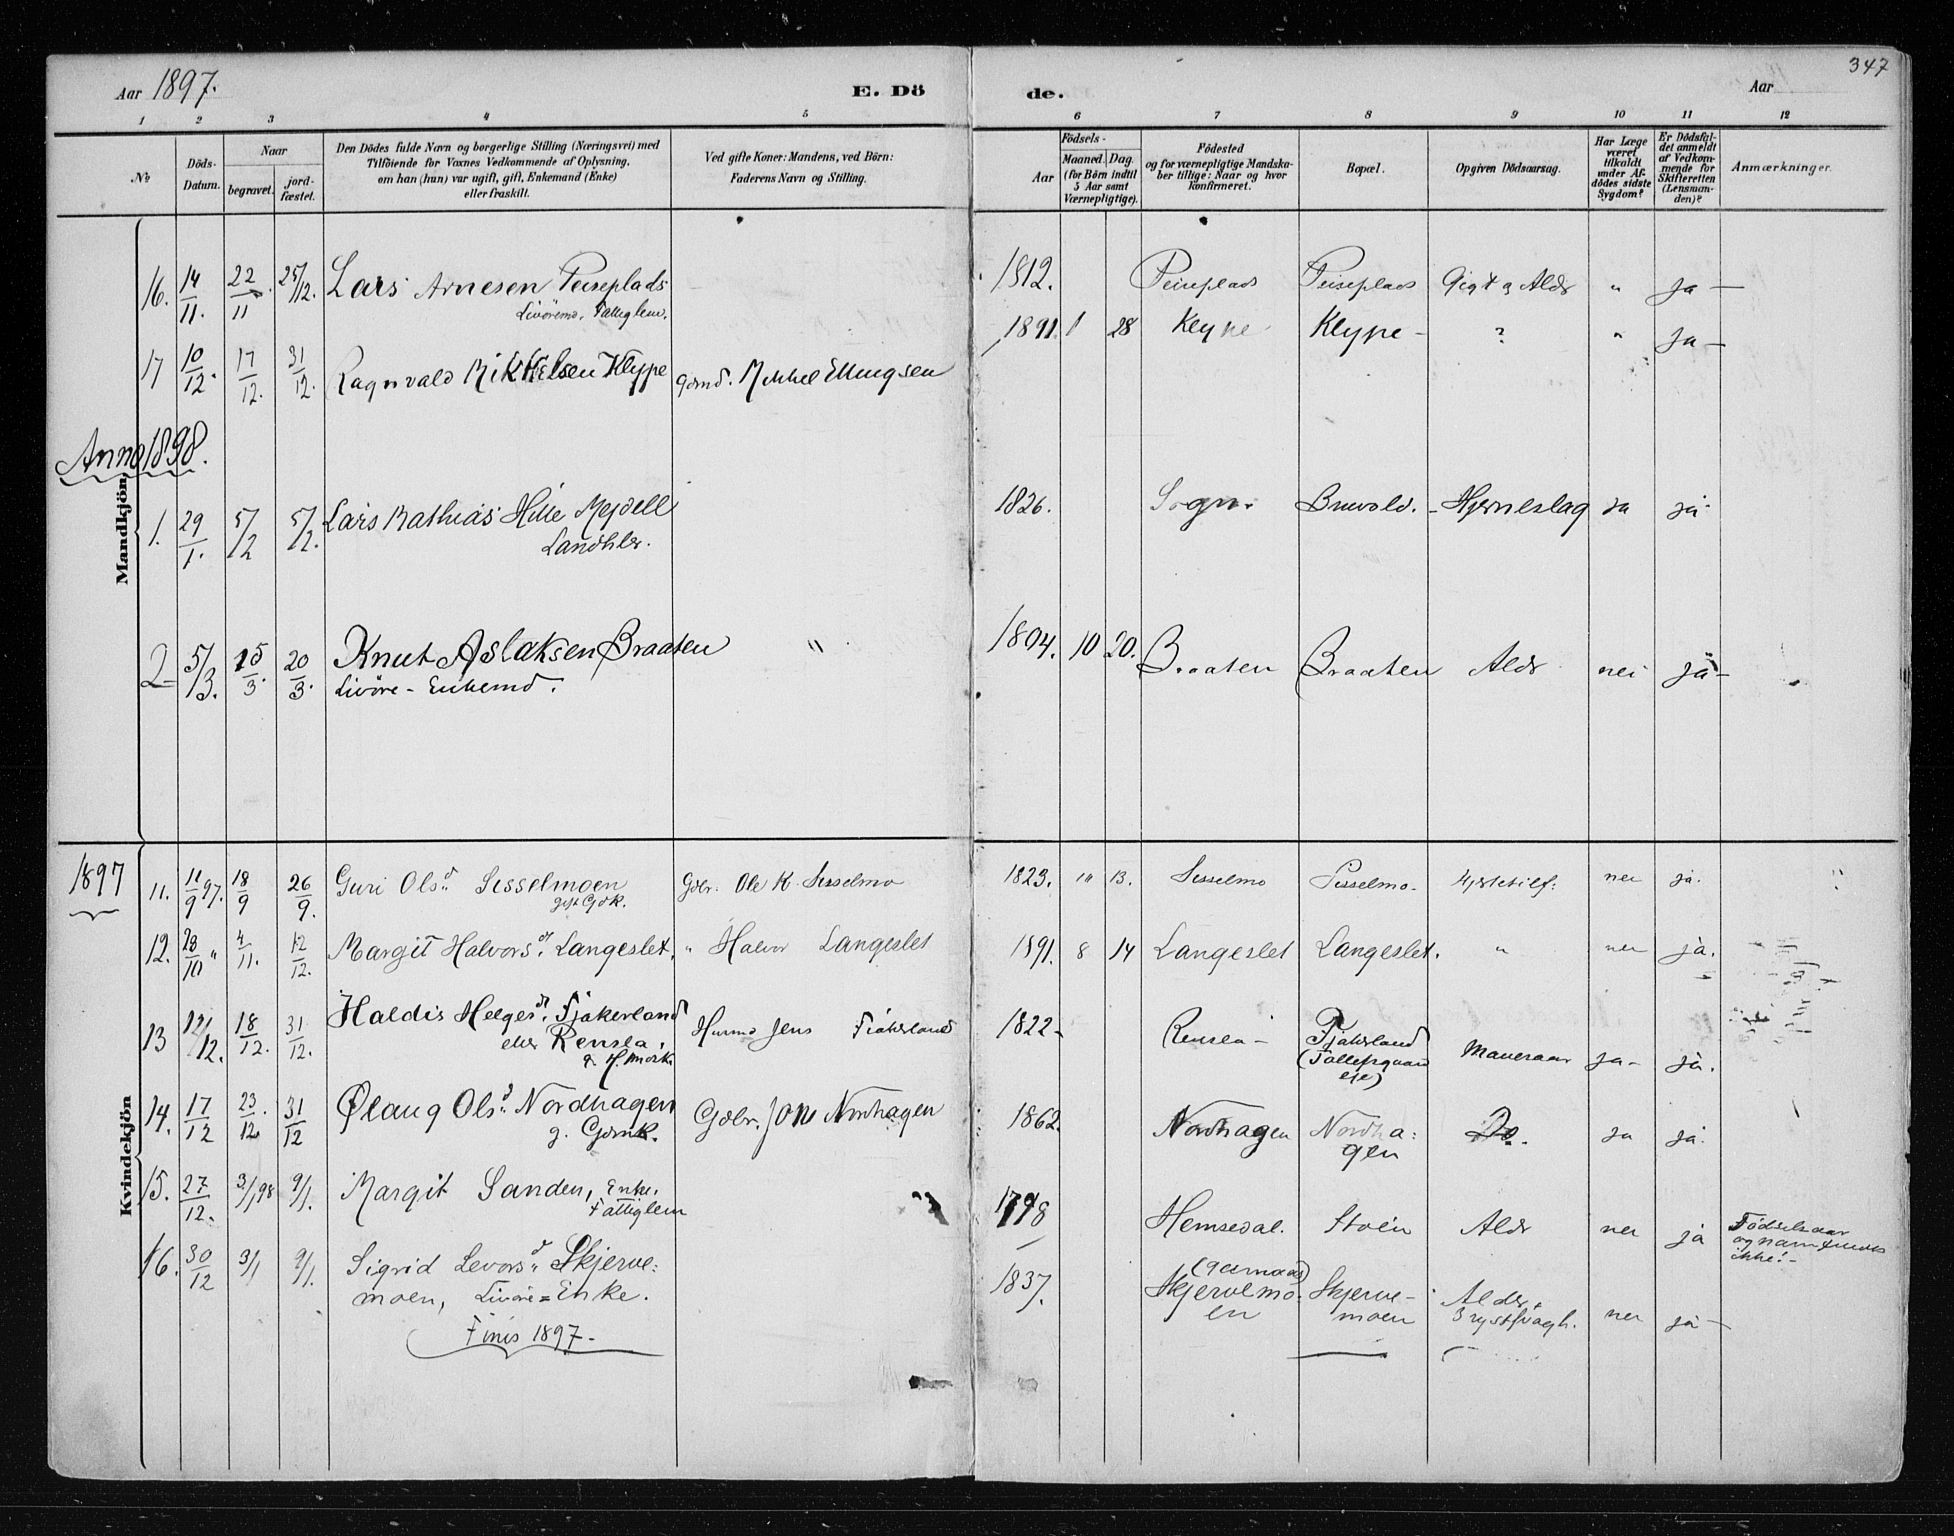 Aar 1897. E. Dö de. Aar 347
1 2 3 4 5 6 7 8 9 10 11 12
No
Döds-Datum.
Naar begravet. jord-fæstet.
Den Dödes fulde Navn og borgerlige Stilling (Næringsvei) med
Tilföiende for Voxnes Vedkommende af Oplysning,
om han (hun) var ugift, gift, Enkemand (Enke)
eller fraskilt.
Ved gifte Koner: Mandens, ved Börn:
Faderens Navn og Stilling.
Födsels-
Aar
Maaned. Dag.
(for Börn indtil
5 Aar samt
Værnepligtige).
Födested
og for værnepligtige Mandska-
ber tillige: Naar og hvor
konfirmeret.
Bopæl.
Opgiven Dödsaarsag.
Har Læge
været
tilkaldt
under Af-
dödes sidste
Sygdom?
Er Dödsfal-
det anmeldt
af Vedkom-
mende for
Skifteretten
(Lensman-
den)?
Anmærkninger.
Mandkjön
16. 14/11. 22/11. 25/12. Lars Arnesen Peiseplads 1812. Peiseplads Peiseplads Gigt og Aldr " ja —
Livöremd. Fattiglem.
17 10/12. 17/12. 31/12. Ragnvald Mikkelsen Klype Gbmd. Mikkel Ellingsen 1891. 1 28 Klype Klype - ? " ja —
Anno 1898.
1. 29/1. 5/2 5/2. Lars Mathias Hille Mejdell 1826. Sogn. - Hjerneslag ja ja
Landhlr.
2 5/3. 15/3. 20/3. Knut Aslaksen Braaten " 1804. 10 20. Braaten Braaten Aldr nei ja —
Livöre - Enkemd.
Kvindekjön
1897
11. 11/9 97. 18/9 26/9. Guri Olsd. Sisselmoen Gdbr. Ole K. Sisselmo 1823. 10 13. Sisselmo Sisselmo. nei ja.
gift Gbk.
12. 28/10 " 4/11. 12/12. Margit Halvorsd. Langeslet. " Halvor Langeslet 1891. 8 14 Langeslet Langeslet. " nei ja.
13 12/12. 18/12. 31/12. Haldis Helgesd. Fjakerland Jens Fjakerland 1822 - Renslea - Fjakerland ja - ja.
eller Renslea.
14. 17/12 23/12 31/12 Ølaug Olsd. Nordhagen Gdbr. Jon Nordhagen 1862. Nordhagen Nordha: Do. ja ja.
g. Gbmk. gen
15. 27/12. 3/1 98 9/1. Margit Sanden, Enke. 1798 Hemsedal. Stoen Aldr nei ja Födselsaar
Fattiglem og navn findes
ikke! -
16. 30/12 3/1 9/1. Sigrid Levorsd. Skjerve: 1837. Skjervemo. Skjerve- Alder. nei ja —
moen, Livöre = Enke. en moen Brystsvagh.
Finis 1897 -